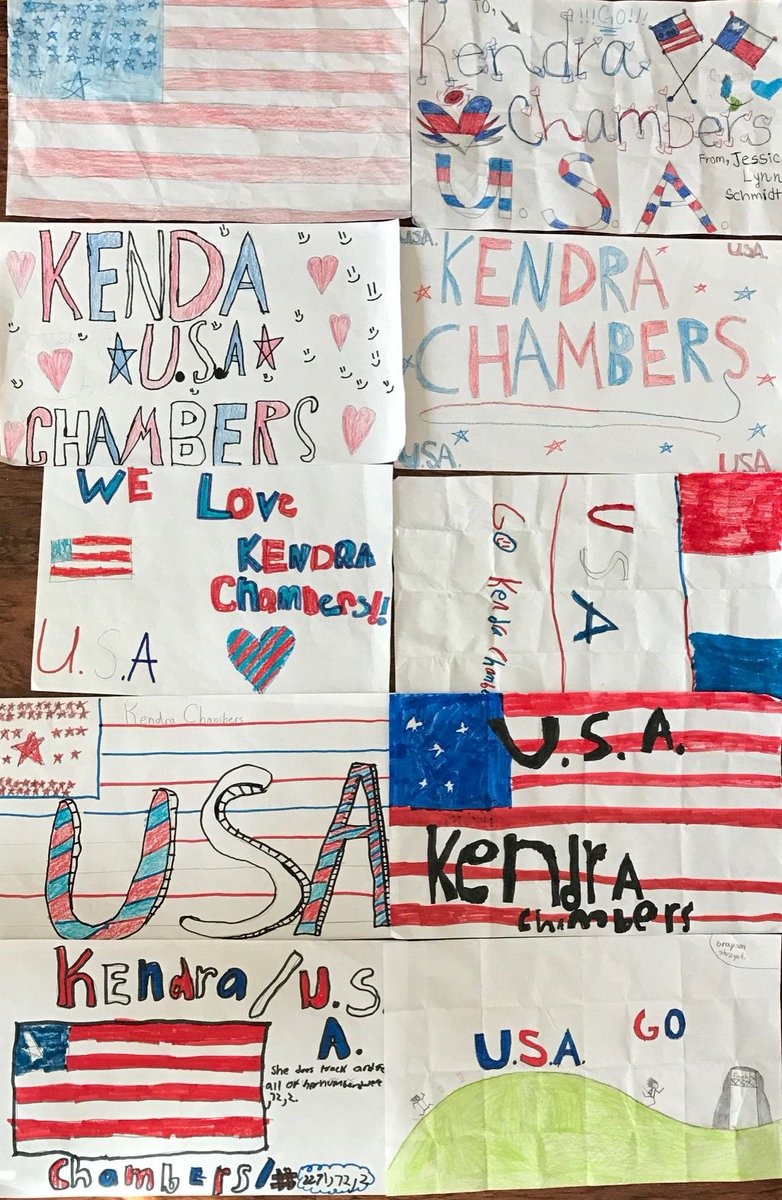 TO,
!!!GO!!!
Kendra
Chambers
U.S.A.
From, Jessic
Lynn
Schmidt
KENDA
U.S.A
CHAMBERS
USA.
USA.
KENDRA
CHAMBERS
USA.
USA.
WE Love
KENDRA
Chambers!!
U.S.A
USA
Go Kenda Chamb
Kendra Chambers
USA
U.S.A.
KendrA
Chambers
Kendra/U.S.
A.
She does track and
all of her number
72,2
Chambers/#
72,2
Grayson
GO
U.S.A.